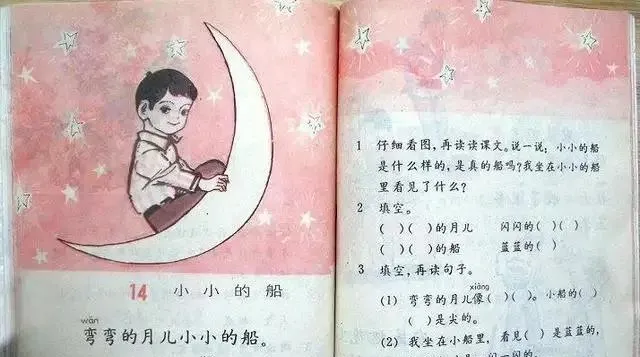 14 小小的船
wān
弯弯的月儿小小的船。
1 仔细看图,再读读课文。说一说:小小的船
是什么样的,是真的船吗?我坐在小小的船
里看见了什么?
2 填空。
( )( )的月儿 闪闪的( )( )
( )( )的船 蓝蓝的( )
3 填空,再读句子。
xiàng
(1) 弯弯的月儿像( )( )。小船的( )
( )是尖的。
(2) 我坐在小船里,看见( )是蓝蓝的,